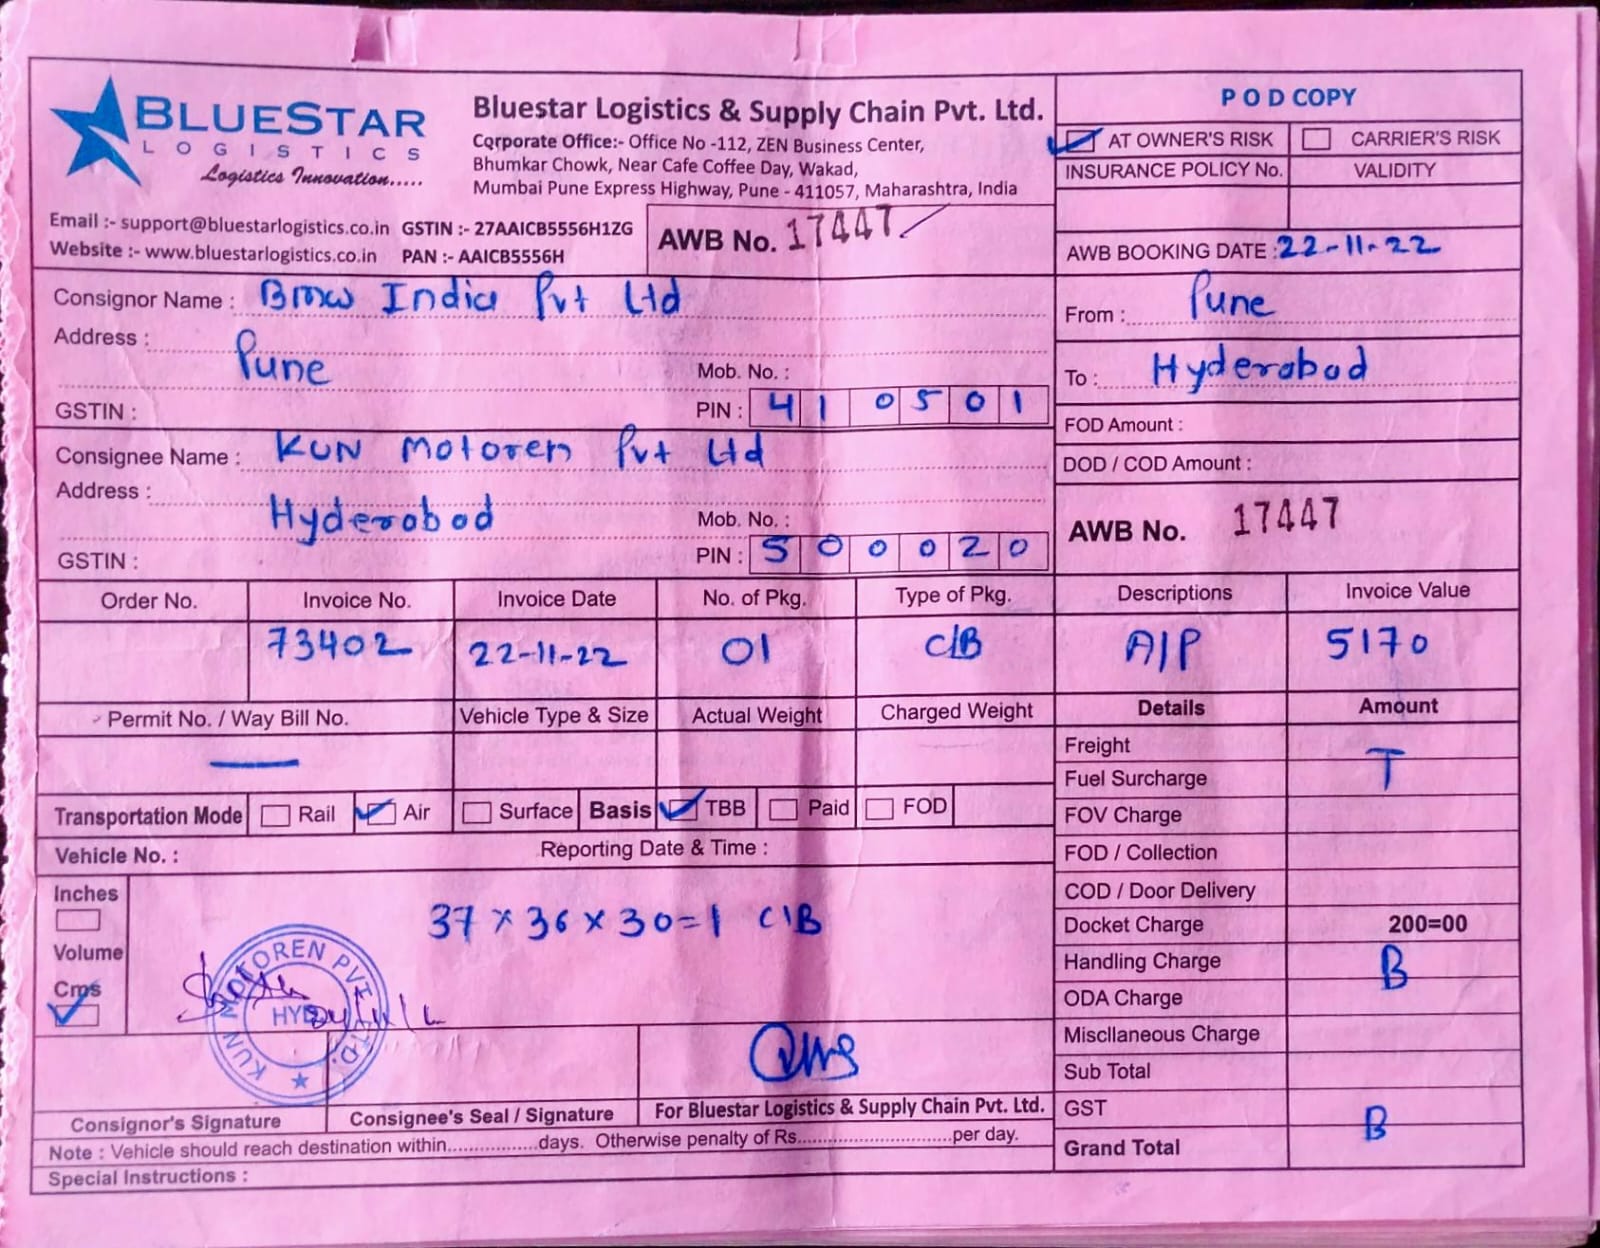 BLUESTAR
LOGISTICS
Logistics Innovation.....
Bluestar Logistics & Supply Chain Pvt. Ltd.
Corporate Office:- Office No -112, ZEN Business Center,
Bhumkar Chowk, Near Cafe Coffee Day, Wakad,
Mumbai Pune Express Highway, Pune - 411057, Maharashtra, India
Email :- support@bluestarlogistics.co.in GSTIN :- 27AAICB5556H1ZG
Website :- www.bluestarlogistics.co.in PAN :- AAICB5556H
AWB No. 17447
POD COPY
AT OWNER'S RISK CARRIER'S RISK
INSURANCE POLICY No. VALIDITY
AWB BOOKING DATE : 22-11-22
Consignor Name : Bmw India Pvt Ltd
Address : Pune
Mob. No. :
GSTIN : PIN : 410501
From : Pune
To : Hyderabad
FOD Amount :
DOD / COD Amount :
Consignee Name : KUN Motoren Pvt Ltd
Address : Hyderabad
Mob. No. :
GSTIN : PIN : 500020
AWB No. 17447
Order No. Invoice No. Invoice Date No. of Pkg. Type of Pkg. Descriptions Invoice Value
73402 22-11-22 01 C/B A/P 5170
Permit No. / Way Bill No. Vehicle Type & Size Actual Weight Charged Weight Details Amount
Freight
T
Fuel Surcharge
Transportation Mode Rail Air Surface Basis TBB Paid FOD
FOV Charge
Vehicle No. : Reporting Date & Time :
FOD / Collection
Inches
COD / Door Delivery
37 x 36 x 30=1 C/B
Docket Charge 200=00
Volume
Handling Charge
B
Cms
ODA Charge
KUN MOTOREN PVT. LTD.
HYD
Miscllaneous Charge
Sub Total
Consignor's Signature Consignee's Seal / Signature For Bluestar Logistics & Supply Chain Pvt. Ltd.
GST
B
Grand Total
Note : Vehicle should reach destination within.................days. Otherwise penalty of Rs............................per day.
Special Instructions :